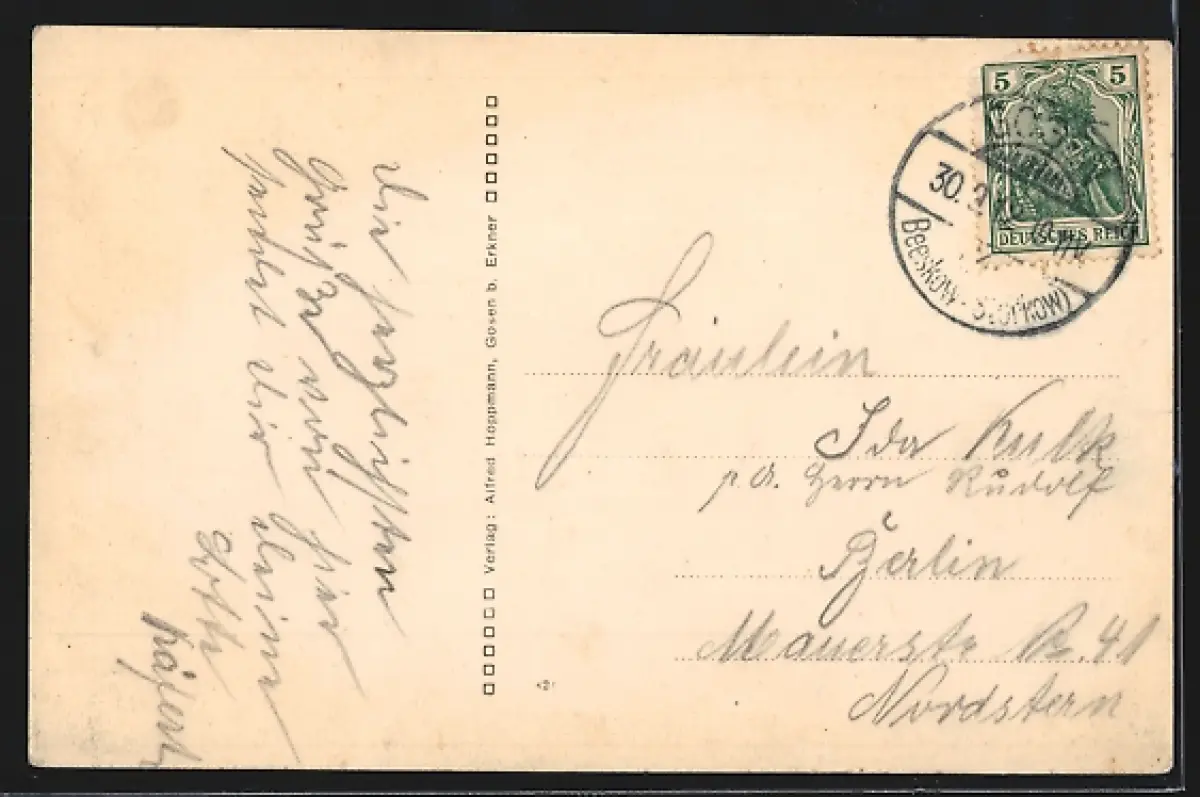 Die herzlichsten
Grüße von hier
sendet Dir Deine
Lotte
Verlag: Alfred Hoppmann, Gosen b. Erkner
5 5
DEUTSCHES REICH
30. 9.
(Beeskow-Storkow)
Fräulein
Ida
p. A. Herrn Rudolf
Berlin
Mauerstr 41
Nordstern